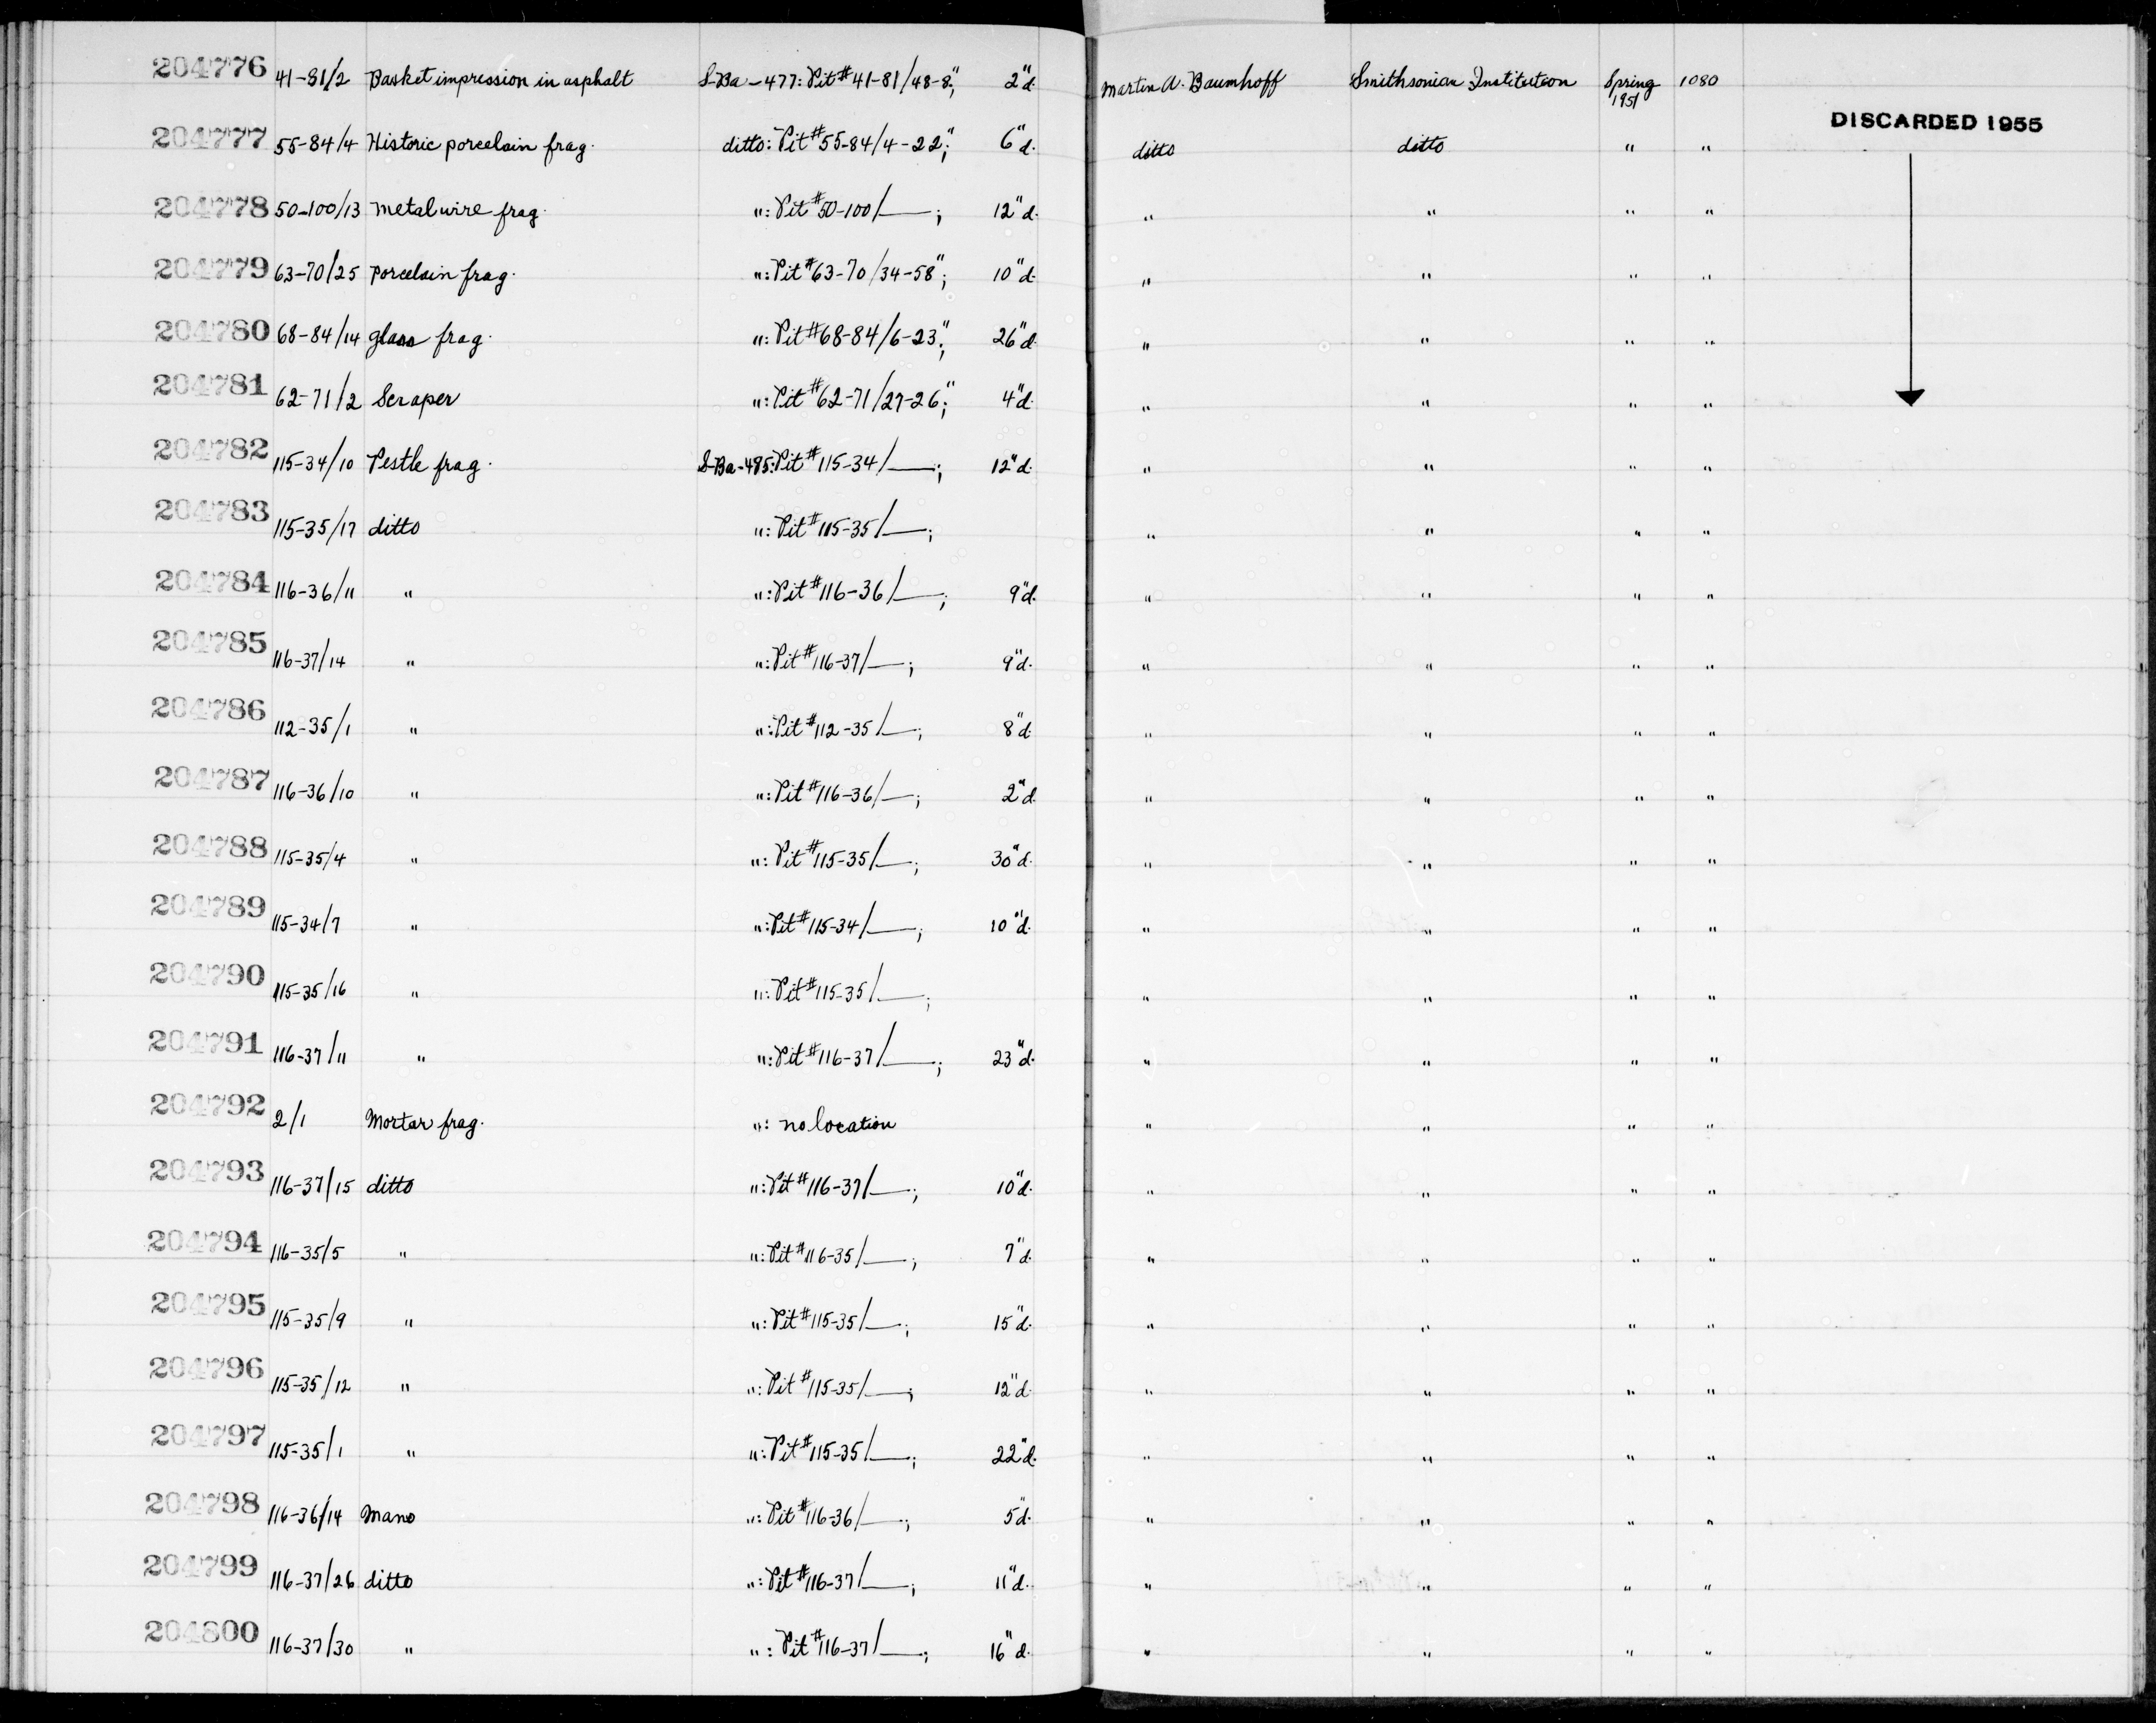 204776 41-81/2 Basket impression in asphalt S-Ba-477: Pit # 41-81/48-8"; 2"d. Martin A. Baumhoff Smithsonian Institution Spring 1951 1080
DISCARDED 1955
204777 55-84/4 Historic porcelain frag. ditto: Pit # 55-84/4-22"; 6"d. ditto ditto " "
204778 50-100/13 Metal wire frag. ": Pit # 50-100/—; 12"d. " " " "
204779 63-70/25 Porcelain frag. ": Pit # 63-70/34-58"; 10"d. " " " "
204780 68-84/14 glass frag. ": Pit # 68-84/6-23"; 26"d. " " " "
204781 62-71/2 Scraper ": Pit # 62-71/27-26"; 4"d. " " " "
204782 115-34/10 Pestle frag. S-Ba-485: Pit # 115-34/—; 12"d. " " " "
204783 115-35/17 ditto ": Pit # 115-35/—; " " " "
204784 116-36/11 " ": Pit # 116-36/—; 9"d. " " " "
204785 116-37/14 " ": Pit # 116-37/—; 9"d. " " " "
204786 112-35/1 " ": Pit # 112-35/—; 8"d. " " " "
204787 116-36/10 " ": Pit # 116-36/—; 2"d. " " " "
204788 115-35/4 " ": Pit # 115-35/—; 30"d. " " " "
204789 115-34/7 " ": Pit # 115-34/—; 10"d. " " " "
204790 115-35/16 " ": Pit # 115-35/—; " " " "
204791 116-37/11 " ": Pit # 116-37/—; 23"d. " " " "
204792 2/1 Mortar frag. ": no location " " " "
204793 116-37/15 ditto ": Pit # 116-37/—; 10"d. " " " "
204794 116-35/5 " ": Pit # 116-35/—; 7"d. " " " "
204795 115-35/9 " ": Pit # 115-35/—; 15"d. " " " "
204796 115-35/12 " ": Pit # 115-35/—; 12"d. " " " "
204797 115-35/1 " ": Pit # 115-35/—; 22"d. " " " "
204798 116-36/14 Mano ": Pit # 116-36/—; 5"d. " " " "
204799 116-37/26 ditto ": Pit # 116-37/—; 11"d. " " " "
204800 116-37/30 " ": Pit # 116-37/—; 16"d. " " " "